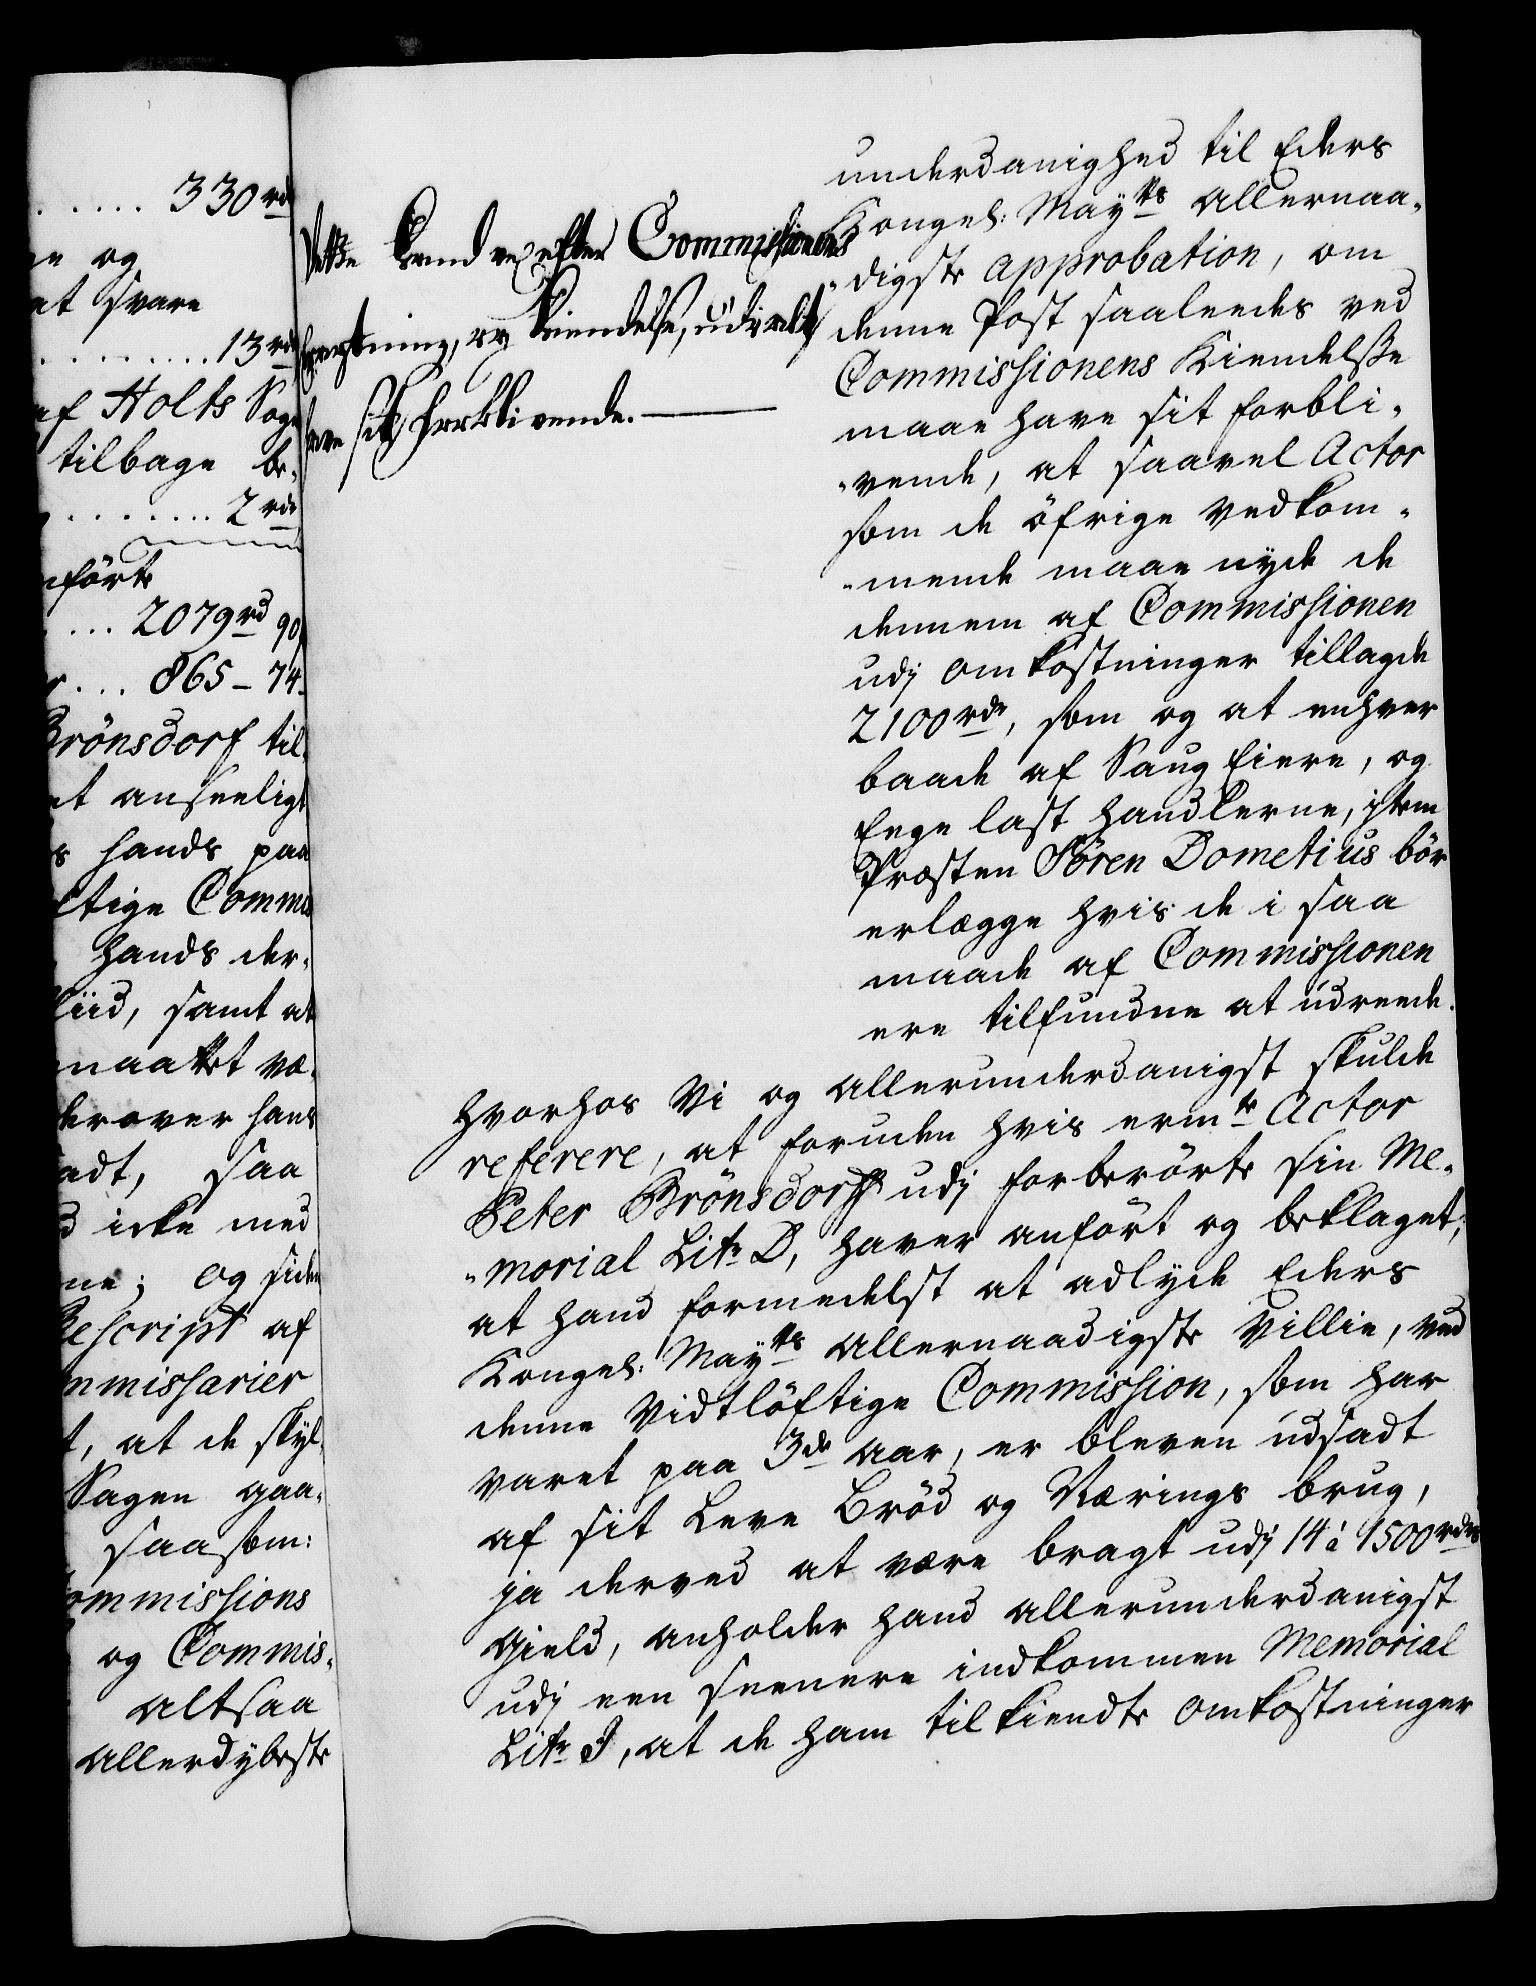 ..... 330 rd
e og
et svare
......... 13 rd
af Holts Sogn
tilbage be-
........ 2 rdr
nförte
... 2079 rd 90
... 865 - 74
Brönsdorf til
et anseeligt
s hands paa
ltige Commis
hands der-
liid, samt at
maattet væ-
derover hans
adt, saa
d icke med
ne; og siden
Rescript af
mmissarier
t, at de skyl-
Sagen gaa-
saasom:
ommissions
og Commis-
altsaa
allerdybeste
Dette kand vel efter Commissionens
Forretning, og Kiendelse, udi alt
have sit forblivende.
underdanighed til Eders
Kongel: Mayts allernaa-
digste approbation, om
denne Post saaleedes ved
Commissionens Kiendelsse
maae have sit forbli-
vende, at saavel Actor
som de öfrige vedkom-
mende maae nyde de
dennem af Commissionen
udj omkostninger tillagde
2100 rdr, som og at enhver
baade af Saug Eiere, og
Eege last handlerne, jtem
Præsten Sören Dometius bör
erlægge hvis de i saa
maade af Commissionen
ere tilfundne at udreede.
Hvorhos Vi og allerunderdanigst skulde
referere, at foruden hvis ermte Actor
Peter Brönsdorff udj forberörte sin Me-
morial Litr D, haver anfört og beklaget,
at hand formedelst at adlyde Eders
Kongel: Mayts allernaadigste Villie, ved
denne Vidtlöftige Commission, som har
varet paa 3de aar, er bleven udsadt
af sit Leve Bröd og Nærings brug,
ja derved at være bragt udj 14 à 1500 rdrs
gield, anholder hand allerunderdanigst
udj een seenere indkommen Memorial
Litr J, at de ham tilkiendte omkostninger